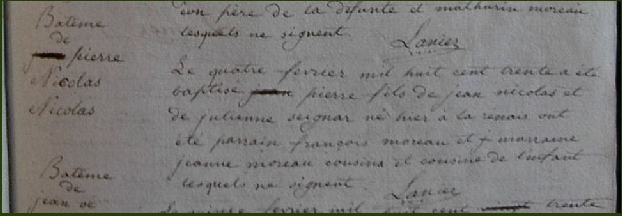 son père de la defunte et mathurin moreau
lesquels ne signent.
Lanier
Batême
de
pierre
Nicolas
Nicolas
Le quatre fevrier mil huit cent trente a été
baptisé jean pierre fils de jean nicolas et
de julienne seignar né hier à la renais ont
été parrain françois moreau et + marraine
jeanne moreau cousins et cousine de l'enfant
lesquels ne signent.
Lanier
Batême
de
jean
fevrier mil huit cent trente